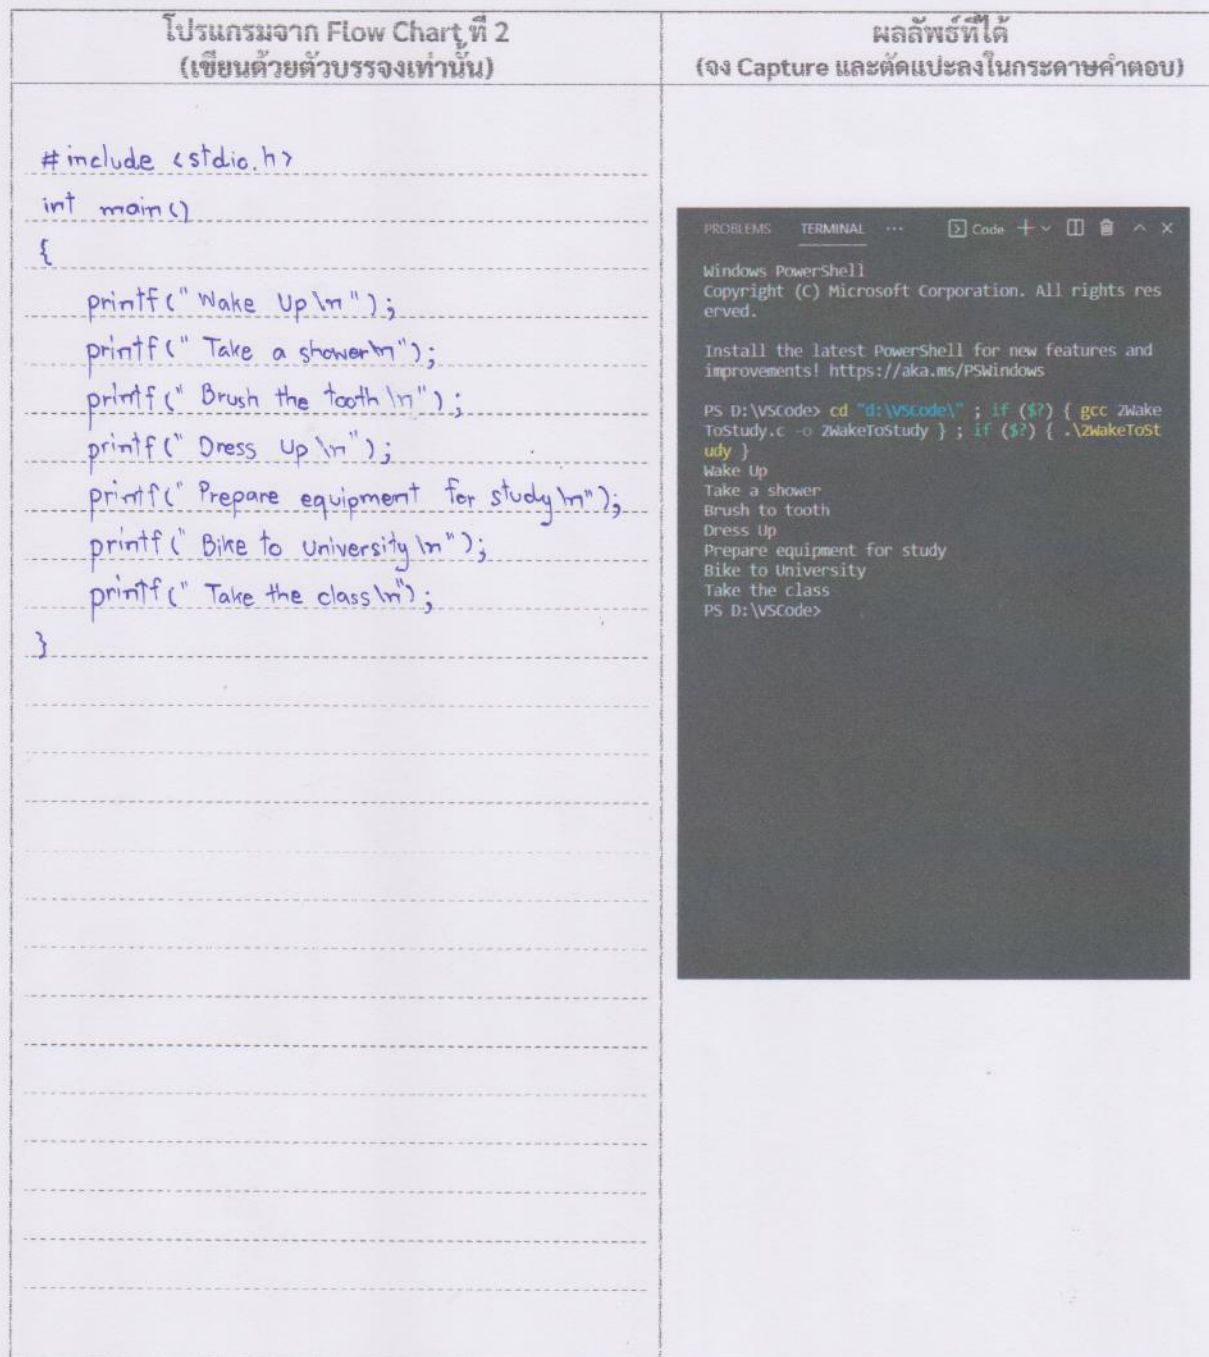 โปรแกรมจาก Flow Chart ที่ 2
(เขียนด้วยตัวบรรจงเท่านั้น)
#include <stdio.h>
int main()
{
printf("Wake Up\n");
printf(" Take a shower\n");
printf(" Brush the tooth\n");
printf(" Dress Up\n");
printf(" Prepare equipment for study\n");
printf(" Bike to University\n");
printf(" Take the class\n");
}
ผลลัพธ์ที่ได้
(จง Capture และตัดแปะลงในกระดาษคำตอบ)
PROBLEMS TERMINAL ... Code
Windows PowerShell
Copyright (C) Microsoft Corporation. All rights res
erved.
Install the latest PowerShell for new features and
improvements! https://aka.ms/PSWindows
PS D:\VSCode> cd "d:\VSCode\" ; if ($?) { gcc 2Wake
ToStudy.c -o 2WakeToStudy } ; if ($?) { .\2WakeToSt
udy }
Wake Up
Take a shower
Brush to tooth
Dress Up
Prepare equipment for study
Bike to University
Take the class
PS D:\VSCode>